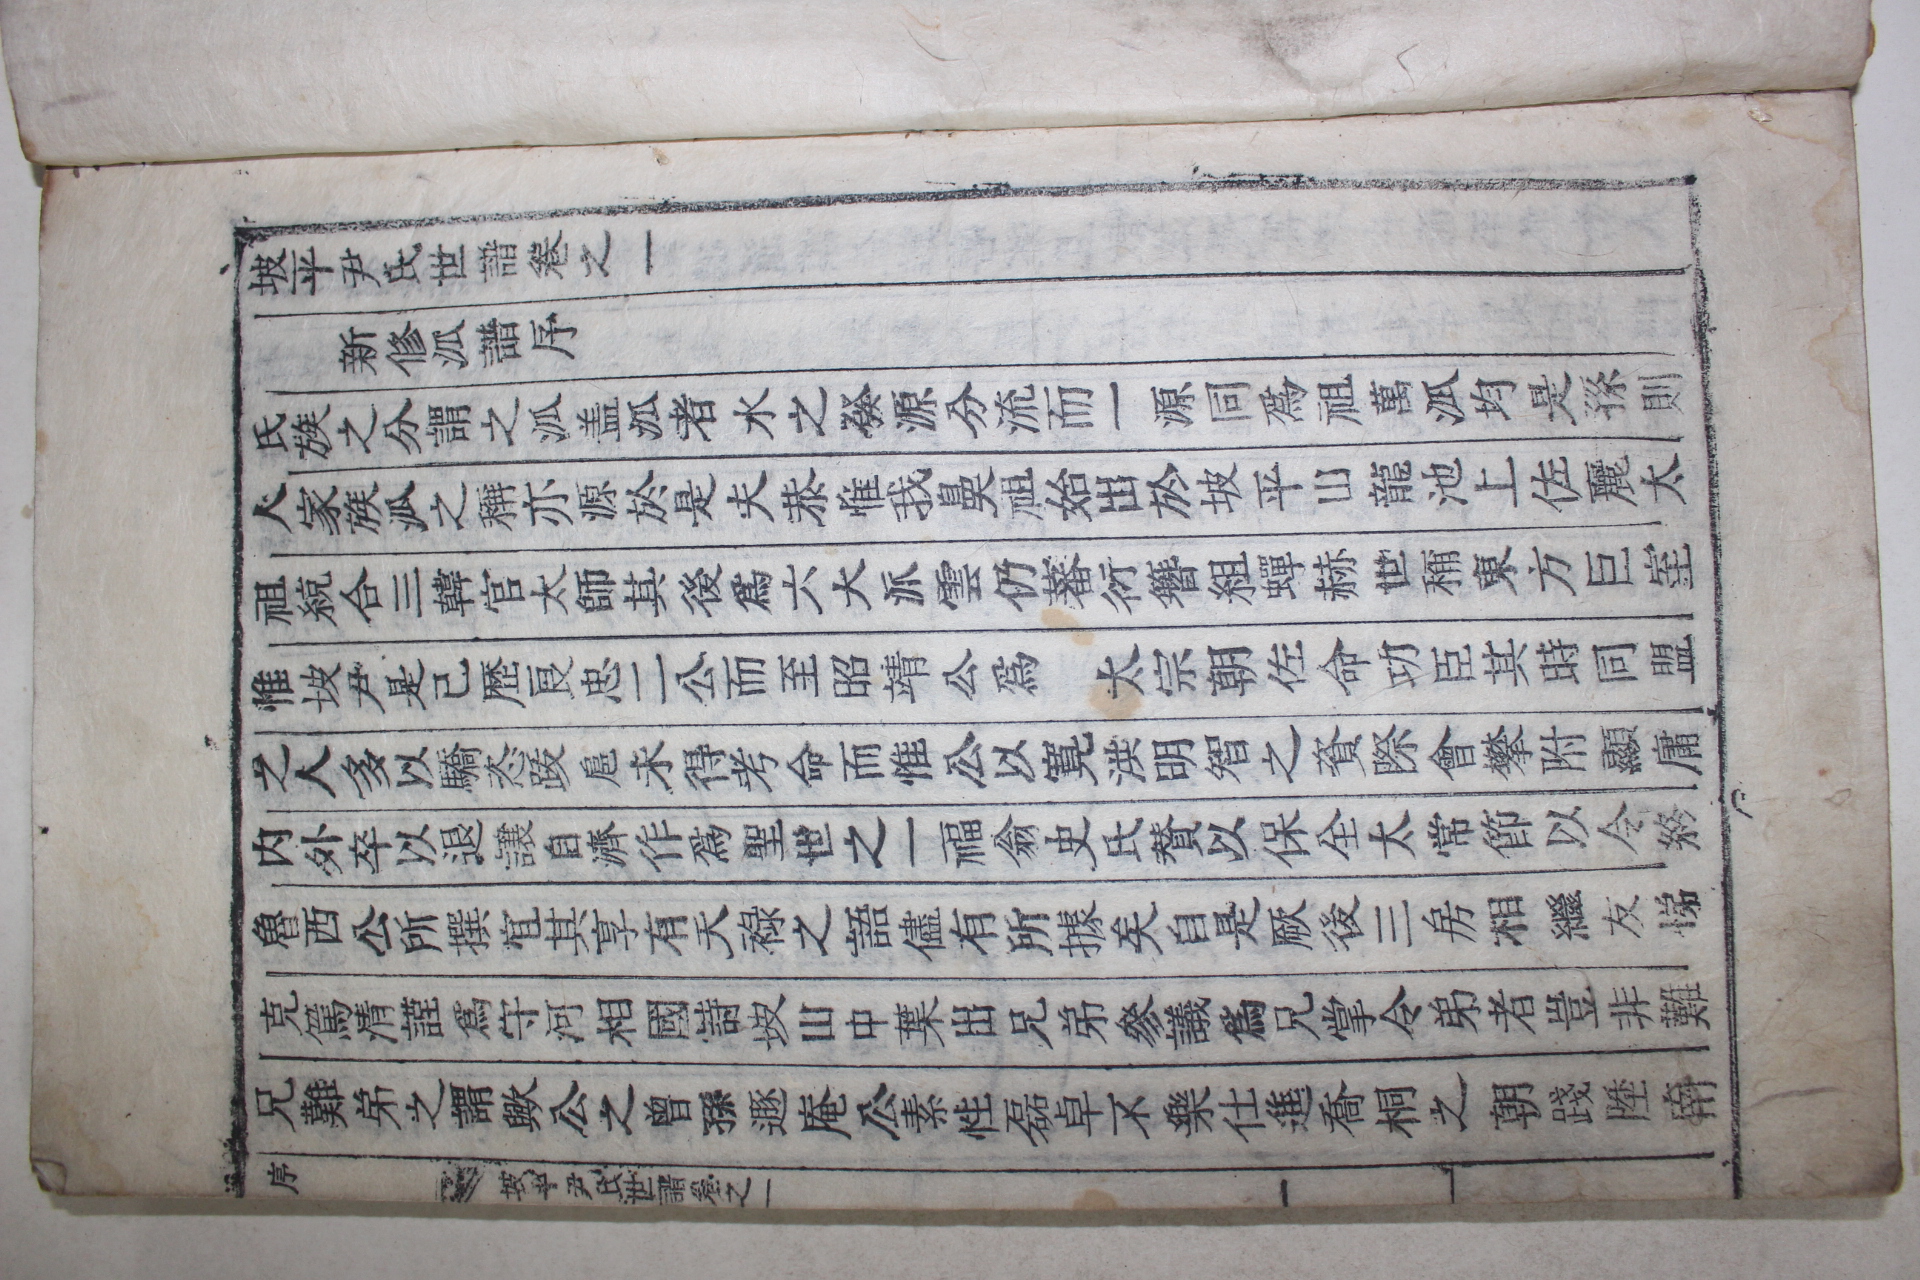 坡平尹氏世譜卷之一
新修派譜序
氏族之分謂之派盖派者水之發源分流而一源同爲祖萬派均是孫則
人家族派之稱亦源於是夫恭惟我鼻祖始出於坡平山龍池上佐麗太
祖統合三韓官太師其後爲六大派雲仍蕃衍簪組蟬赫世稱東方巨室
惟坡尹是已歷良忠二公而至昭靖公爲 太宗朝佐命功臣其時同盟
之人多以驕恣跋扈未得考命而惟公以寬洪明智之資際會攀附顯庸
内外卒以退讓自濟作爲聖世之一福翁史氏賛以保全太常節以令終
魯西公所撰宜其享有天祿之語儘有所據矣自是厥後三房相繼友悌
克篤淸謹爲守河相國詩坡山中葉出兄弟參議爲兄掌令弟者豈非難
兄難弟之謂歟公之曾孫遯庵公素性磊卓不樂仕進喬桐之朝踐陞
序 坡平尹氏世譜卷之一 一